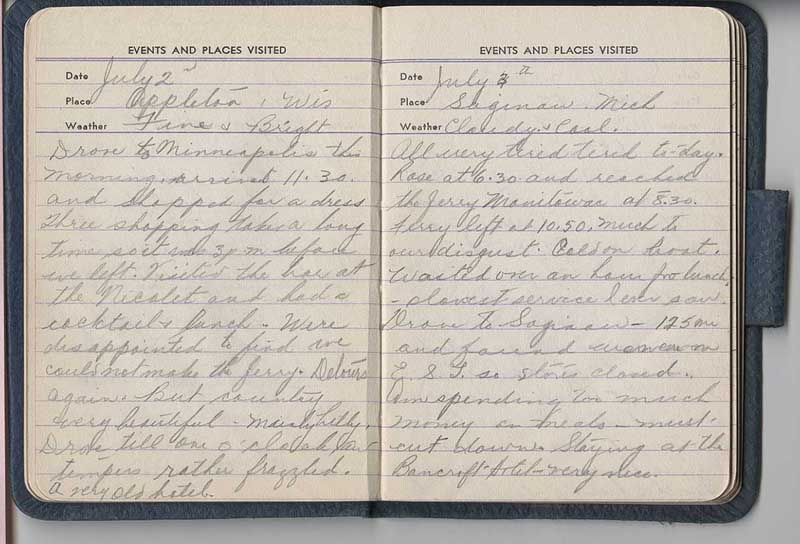 EVENTS AND PLACES VISITED
Date July 2nd
Place Appleton, Wis
Weather Fine & Bright
Drove to Minneapolis this
morning. 11.30.
and shopped for a dress
Three shopping takes a long
time so it was 3 p m before
we left. Visited the bar at
the Nicolet and had a
cocktail & lunch. Were
disappointed to find we
could not make the ferry. Detours
again. But country
very beautiful - hilly.
Drove till one o'clock and
tempers rather frazzled.
A very old hotel.
EVENTS AND PLACES VISITED
Date July 3th
Place Saginaw. Mich
Weather Cloudy & Cool.
All very tired tired to-day.
Rose at 6.30 and reached
the ferry Manitowac at 8.30.
Ferry left at 10.50. much to
our disgust. Cold on boat.
Wasted over an hour for lunch,
- slowest service I ever saw.
Drove to Saginaw - 125 mi
and found we were on
E. S. T. so stores closed.
Am spending too much
money on meals - must
cut down. Staying at the
Bancroft Hotel - very nice.